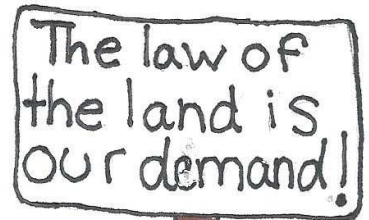 The law of
the land is
our demand!